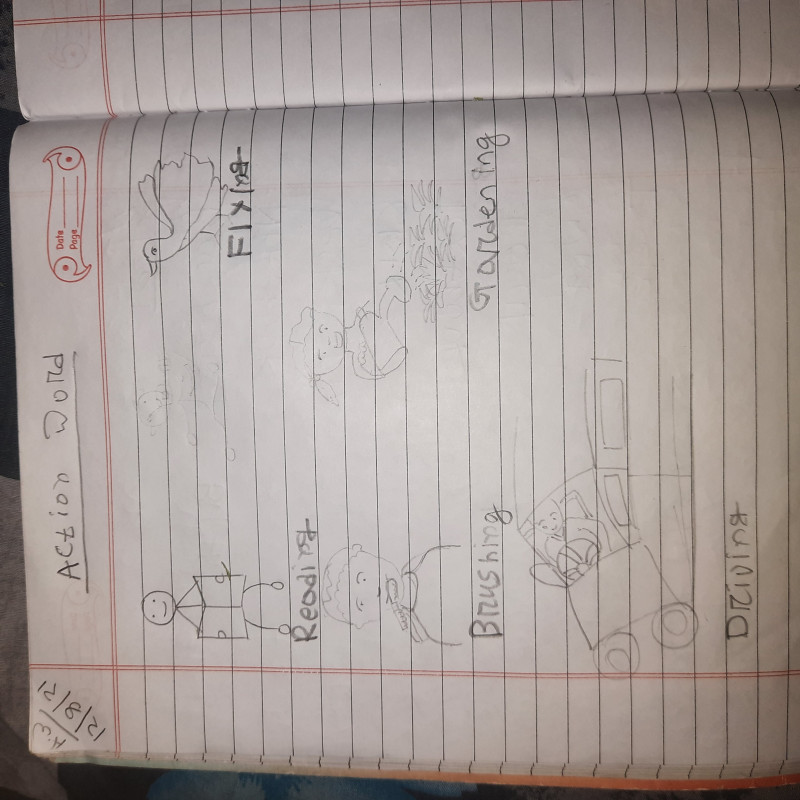 Action Word
Date
Page
Reading
Flying
Brushing
Gardening
Driving